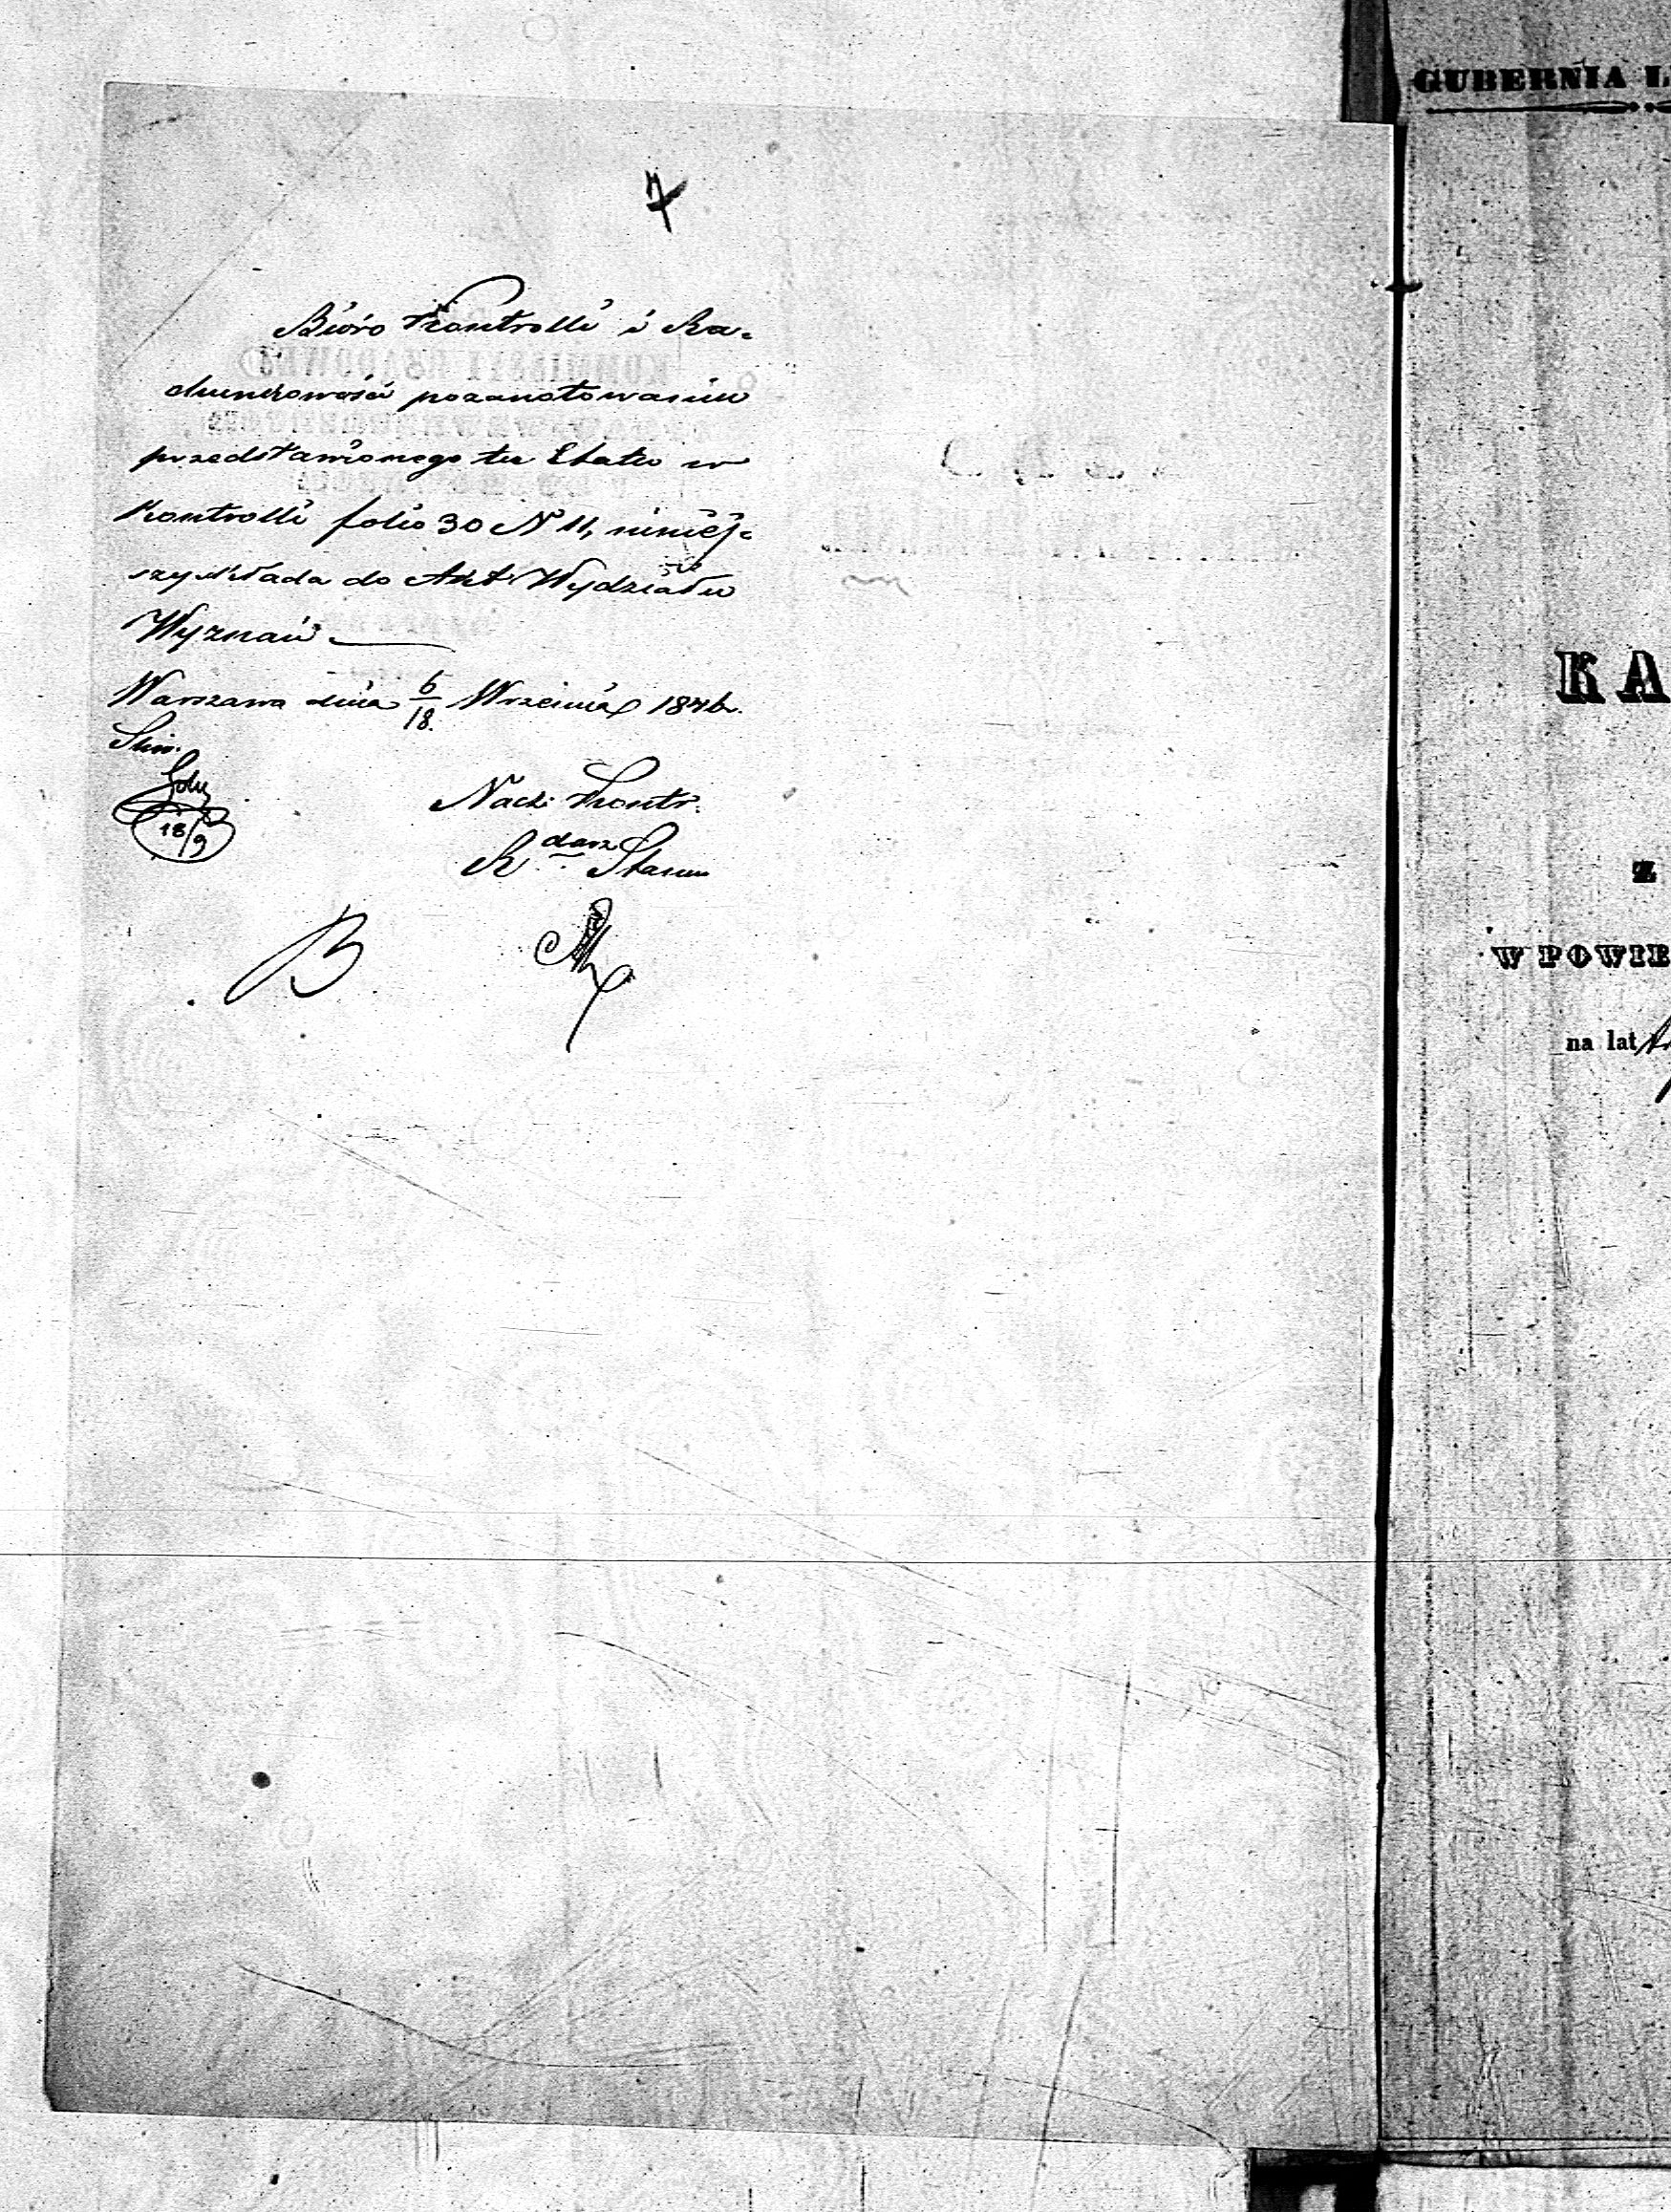 7
Biuro Kontrolli i Ra-
chunkowości po zanotowaniu
przedstawionego tu Etatu w
Kontrolli folio 30 N 11, niniej-
szy składa do Akt Wydziału
Wyznań
Warszawa dnia 6/18. Września 1846.
Nacz: Kontr.
R darz Stanu
18/9
B
GUBERNIA L
KA
Z
W POWIE
na lat